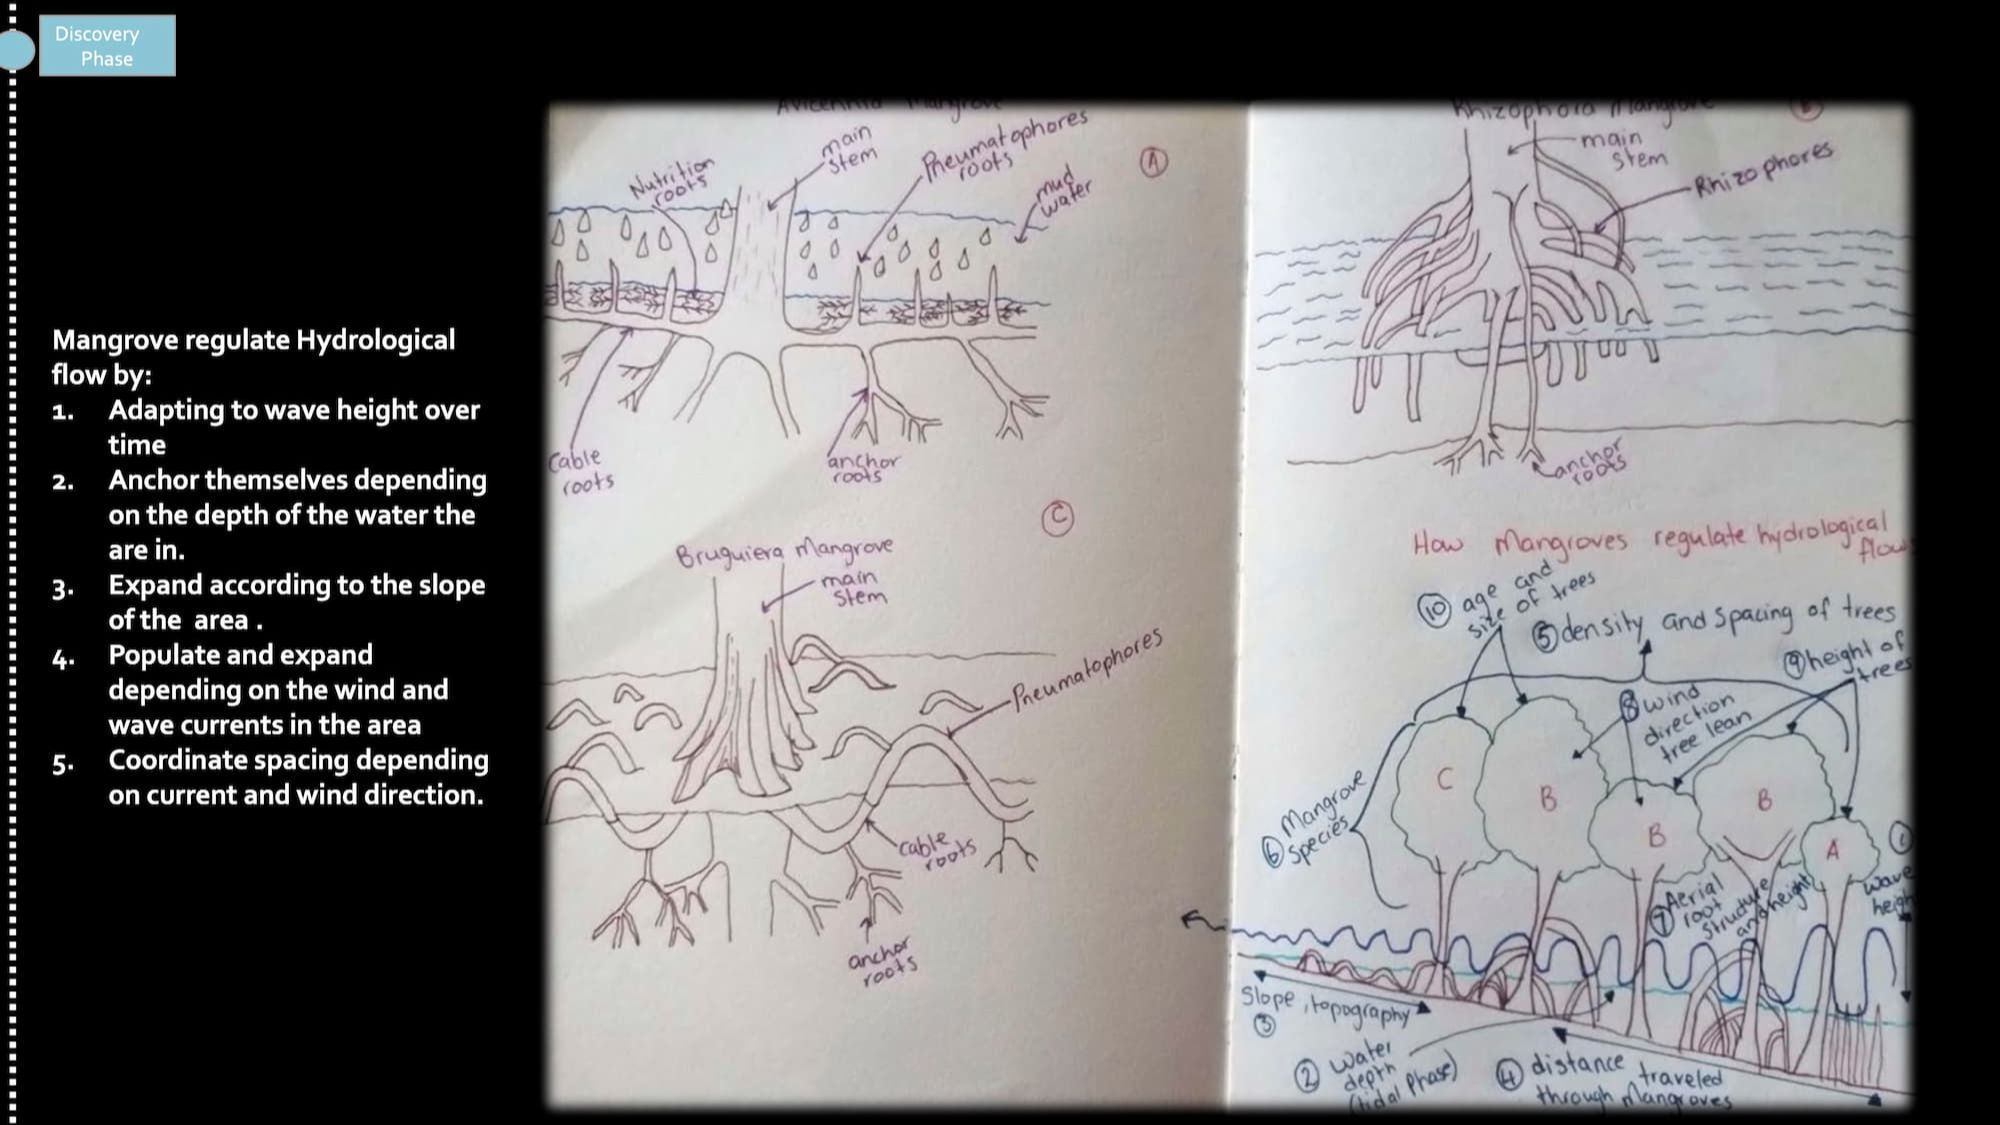 Discovery
Phase
Mangrove regulate Hydrological
flow by:
1. Adapting to wave height over
time
2. Anchor themselves depending
on the depth of the water the
are in.
3. Expand according to the slope
of the area .
4. Populate and expand
depending on the wind and
wave currents in the area
5. Coordinate spacing depending
on current and wind direction.
Avicennia Mangrove
A
Nutrition
roots
main
stem
Pneumatophores
roots
mud
water
cable
roots
anchor
roots
C
Bruguiera Mangrove
main
stem
Pneumatophores
cable
roots
anchor
roots
Rhizophora Mangrove
B
main
stem
Rhizophores
anchor
roots
How Mangroves regulate hydrological
flow
10 age and
size of trees
5 density and spacing of trees
9 height of
trees
8 wind
direction
tree lean
6 Mangrove
species
C
B
B
B
A
7 Aerial
root
structure
and height
1
wave
heigh
Slope, topography
3
2 water
depth
(tidal phase)
4 distance traveled
through Mangroves